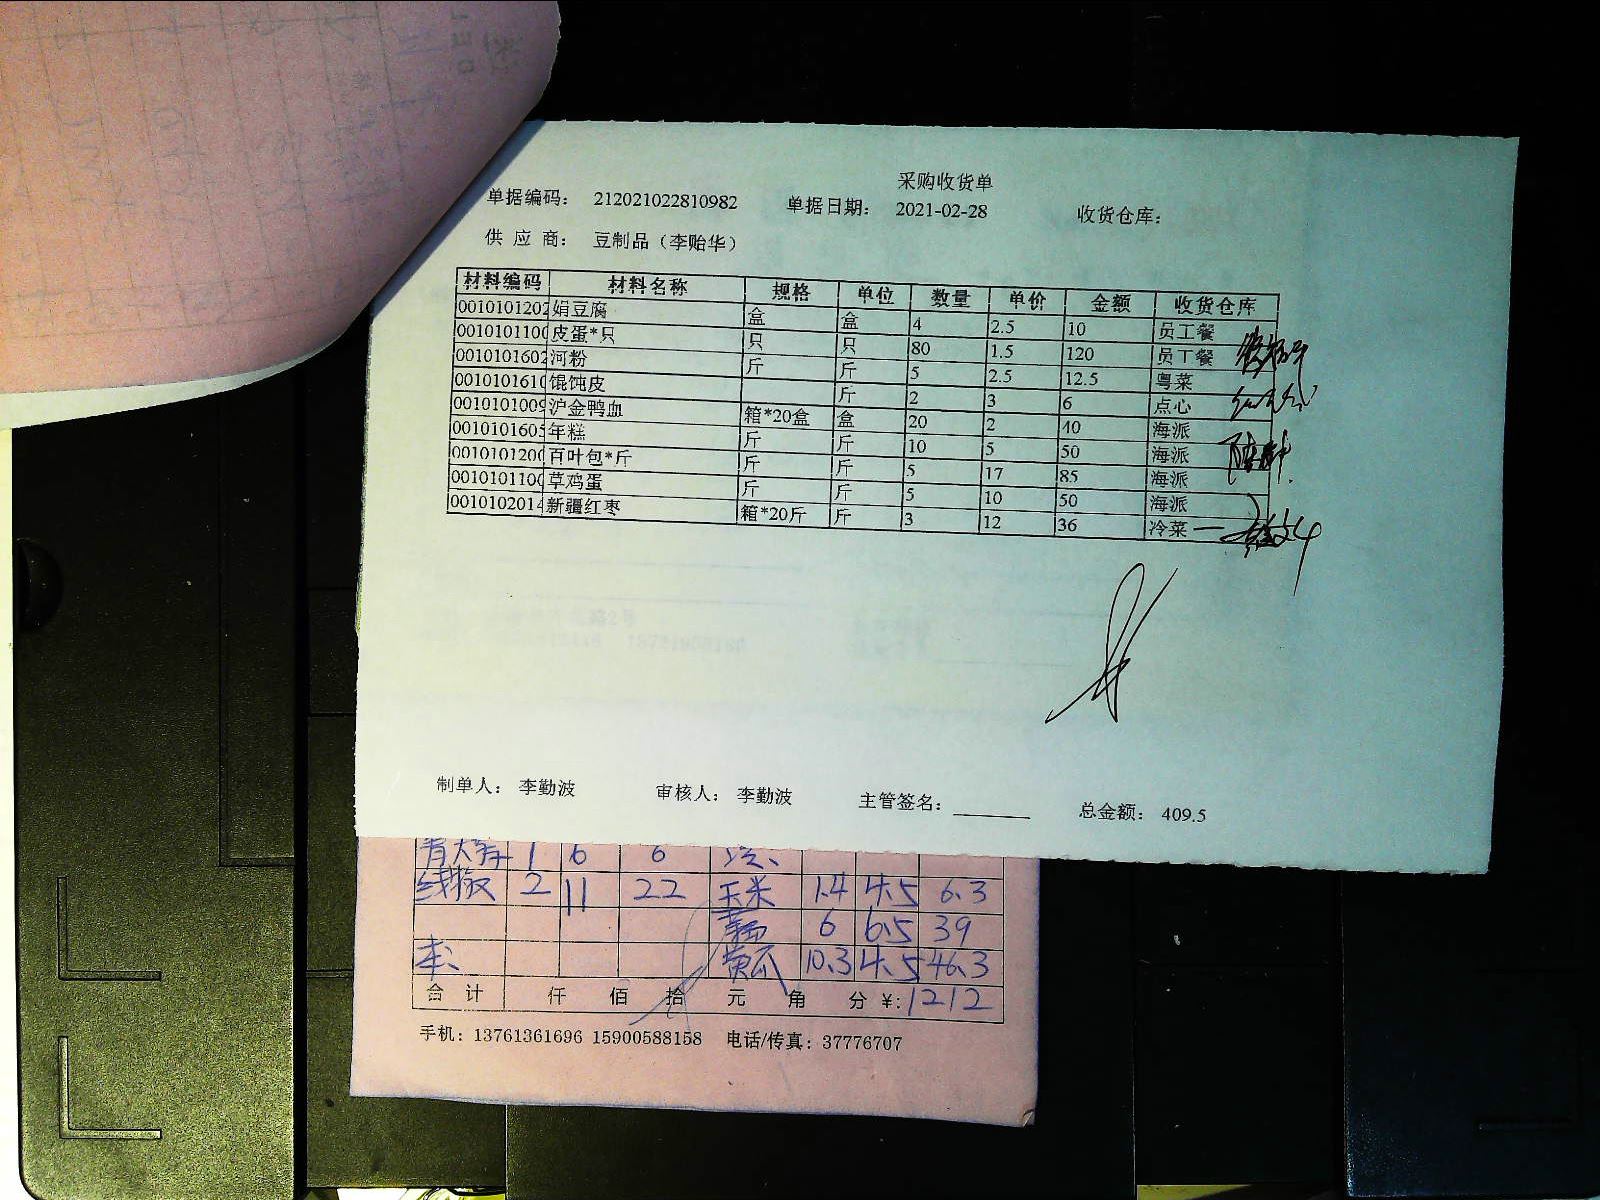 采购收货单
单据编码： 212021022810982 单据日期： 2021-02-28 收货仓库：
供 应 商： 豆制品（李贻华）
材料编码 材料名称 规格 单位 数量 单价 金额 收货仓库
0010101202 娟豆腐 盒 盒 4 2.5 10 员工餐
0010101100 皮蛋*只 只 只 80 1.5 120 员工餐
0010101602 河粉 斤 斤 5 2.5 12.5 粤菜
001010161 馄饨皮 斤 2 3 6 点心
001010100 沪金鸭血 箱*20盒 盒 20 2 40 海派
001010160 年糕 斤 斤 10 5 50 海派
001010120 百叶包*斤 斤 斤 5 17 85 海派
001010110 草鸡蛋 斤 斤 5 10 50 海派
0010102014 新疆红枣 箱*20斤 斤 3 12 36 冷菜
制单人： 李勤波 审核人： 李勤波 主管签名： 总金额： 409.5
1 6 6
线椒 2 11 22 玉米 1.4 4.5 6.3
6 6.5 39
本、 黄瓜 10.3 4.5 46.3
合 计 仟 佰 拾 元 角 分 ￥: 1212
手机：13761361696 15900588158 电话/传真：37776707